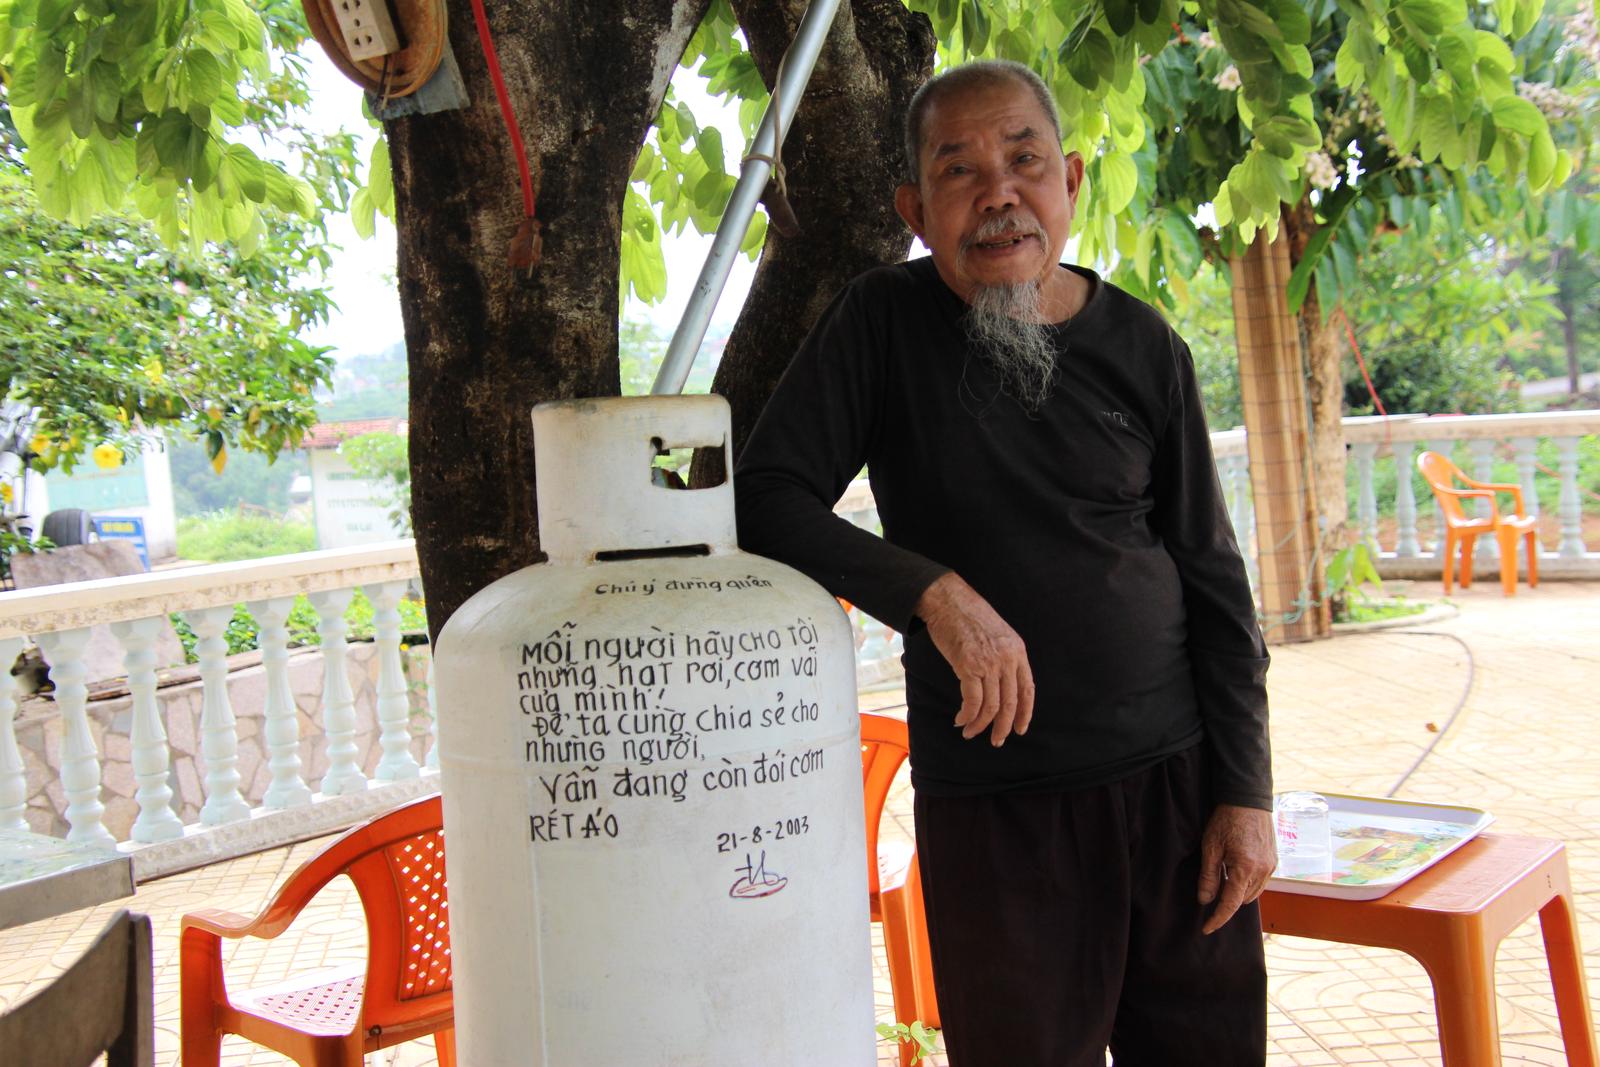 Chú ý đừng quên
MỖi người hãy CHO TÔI
những hạT rơi, cơm vãi
của mình!
Để, ta cùng chia sẻ cho
những người,
Vẫn đang còn đói cơm
RÉT ÁO
21-8-2003